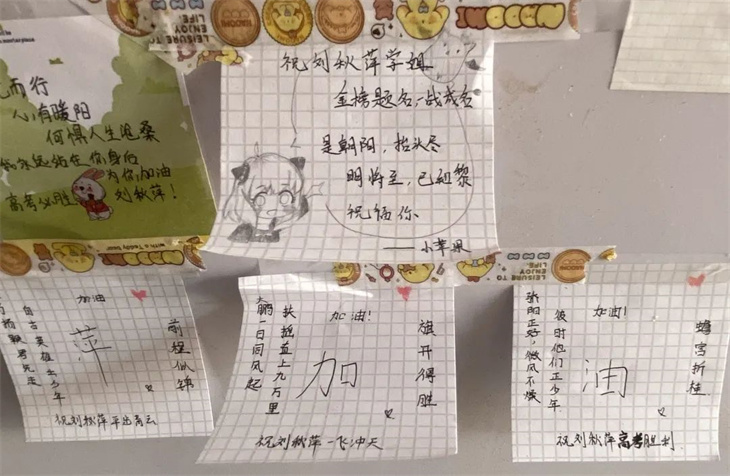 而行
心有暖阳
何惧人生沧桑
在你身后
为你加油
高考必胜
刘秋萍！
祝刘秋萍学姐
金榜题名,一战成名
是朝阳，抬头尽
明将至，已红黎
祝福你
——小苹果
LEISURE TO
ENJOY
LIFE.
加油
萍
前程似锦
自古英雄出少年
祝刘秋萍平步青云
大鹏一日同风起
扶摇直上九万里
加油！
加
旗开得胜
祝刘秋萍一飞冲天
骄阳正好，微风不燥
彼时他们正少年
加油！
油
蟾宫折桂
祝刘秋萍高考胜利